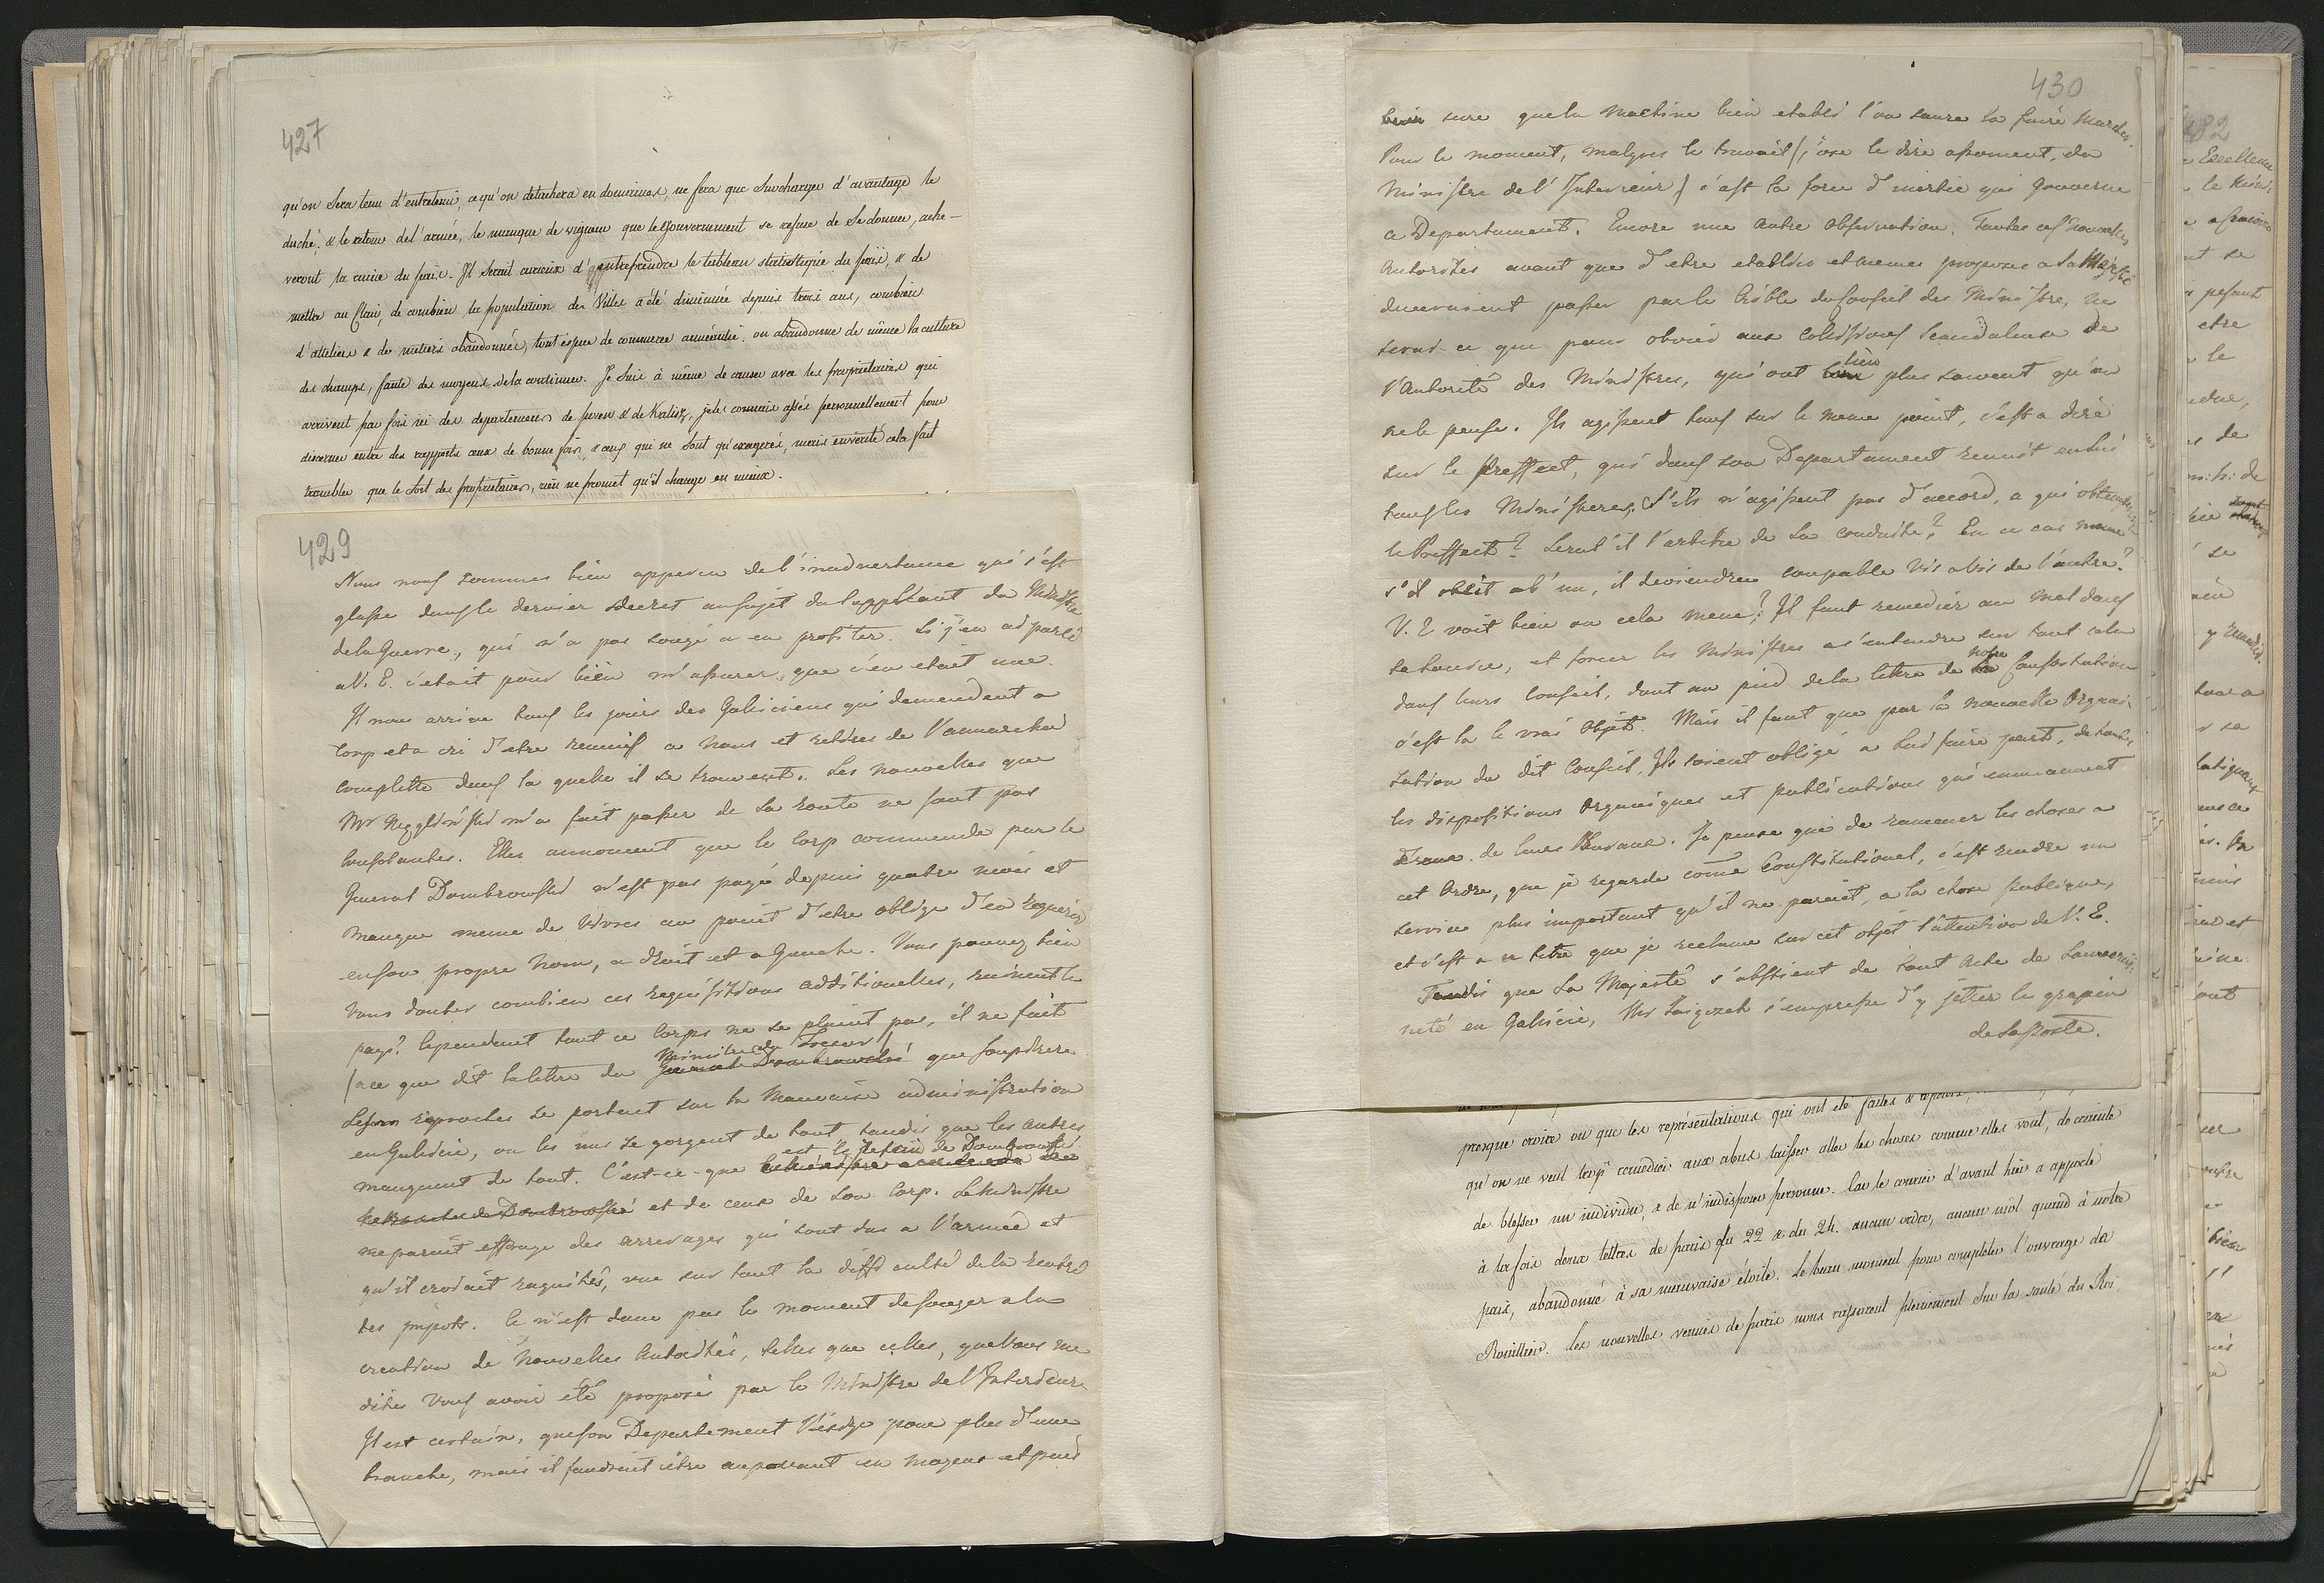 427
qu'on sera tenu d'entretenir, ce qu'on detachera en domaines, ne fera que surcharger d'avantage le
duché, & le retour de l'armée, le manque de vigueur que le gouvernement se refuse de se donner, ache-
veront la ruine du païs. Il serait curieux d'entreprendre le tableau statistique du païs, & de
mettre au clair, de combien la population des Villes a été diminuée depuis trois ans, combien
d'atteliers & des metiers abandonnés, tout espece de commerce anneantie. on abandonne de même la culture
des champs, faute des moyens de la continuer. Je suis à même de causer avec les proprietaires qui
arrivent par fois ici des departemens de posen & de Kalisz, je les connais assés personnellement pour
discerner entre des rapports ceux de bonne foi, & ceux qui ne sont qu'exagerés, mais en verité cela fait
trembler que le sort des proprietaires, rien ne promet qu'il change en mieux.
429
Nous nous sommes bien apperçu de l'inadvertance qui s'est
glissé dans le dernier decret au sujet du suppléant du Ministre
de la Guerre, qui n'a pas songé a en profiter. Si j'en ai parlé
a V. E. c'etait pour bien m'assurer, que c'en etait une.
Il nous arrive tous les jours des Galiciens qui demandent a
corp et a cri d'etre reunis a nous et retirés de l'annarchie
complette dans la quelle il se trouvent. Les nouvelles que
Mr m'a fait passer de sa route ne sont pas
consolantes. Elles annoncent que le corp commendé par le
General Dombrowski n'est pas payé depuis quatre mois et
manque meme de vivres au point d'etre obligé d'en requerir
en son propre nom, a droit et a gauche. Vous pouvez bien
vous douter combien ces requisitions additionelles, ruinent le
pays. Cependant tout ce corps ne se plaint pas, il ne fait
(a ce que dit la lettre du Ministre du Tresor) que soupirer
Les reproches se portent sur la mauvaise administration
en Galicie, ou les uns se gorgent de tout tandis que les autres
manquent de tout. C'est-ce-que est le refrain de Dombrowski
et de ceux de son corp. Le Ministre
me parait effrayé des arrerages qui sont dus a l'armée et
qu'il croyait acquités, vue sur tout la difficulté de la rentré
des impots. Ce n'est donc pas le moment de songer a la
creation de nouvelles autorités, telles que celles, que vous me
dites vous avoir été proposés par le Ministre de l'Interieur.
Il est certain, que son Departement l'exige pour plus d'une
branche, mais il faudrait être auparavant en moyens et puis
430
bien sure que la machine bien etabli l'on saura la faire marcher.
Pour le moment, malgres le travail (j'ose le dire assoment, du
Ministre de l'Interieur) c'est la force d'inertie qui gouverne
ce Departement. Encore une autre observation. Toutes ces nouvelles
autorités avant que d'etre etablies et meme proposes a Sa Majesté
devraient passer par le crible du Conseil des Ministre, ne
serait-ce que pour obvier aux collisions scandaleuses de
l'autorité des Ministres, qui ont lieu plus souvent qu'on
ne le pense. Ils agissent tous sur le meme point, c'est a dire
sur le Preffect, qui dans son Departement reunit en lui
tous les Ministeres, s'ils n'agissent pas d'accord, a qui
le Preffect? Serat'il l'arbitre de sa conduite? En ce cas meme
s'il obeit al'un, il deviendra coupable vis a vis de l'autre?
V. E voit bien ou cela mene? Il faut remedier au mal dans
sa source, et forcer les Ministres a s'entendre sur tout cela
dans leurs Conseil, dont au pied de la lettre de notre Constitution
c'est la le vrai objet. Mais il faut que par la nouvelle organi-
sation du dit Conseil, Ils soient obligé a lui faire part, de toutes
les dispositions organiques et publications qui emmannent
de leurs Bureaux. Je pense que de ramener les choses a
cet ordre, que je regarde come Constitutionel, c'est rendre un
service plus important qu'il ne parait, a la chose publique,
et c'est a ce titre que je reclame sur cet objet l'attention de V. E.
Tandis que Sa Majesté s'abstient de tout acte de Souverai-
neté en Galicie, Mr s'empresse d'y jetter le grapin
de la Poste.
presque croire ou que les représentations qui ont été faites
qu'on ne veut trop remedier aux abus laisser aller les choses comme elles vont, de crainte
de blesser un individu, & de n'indisposer personne. Car le courier d'avant hier a apporté
à la fois deux lettres de paris du 22 & du 24. aucun ordre, aucun mot quand à notre
païs, abandonné à sa mauvaise étoile. Le beau moment pour completer l'ouvrage de
Les nouvelles venues de paris nous rassurent pleinement sur la santé du Roi.